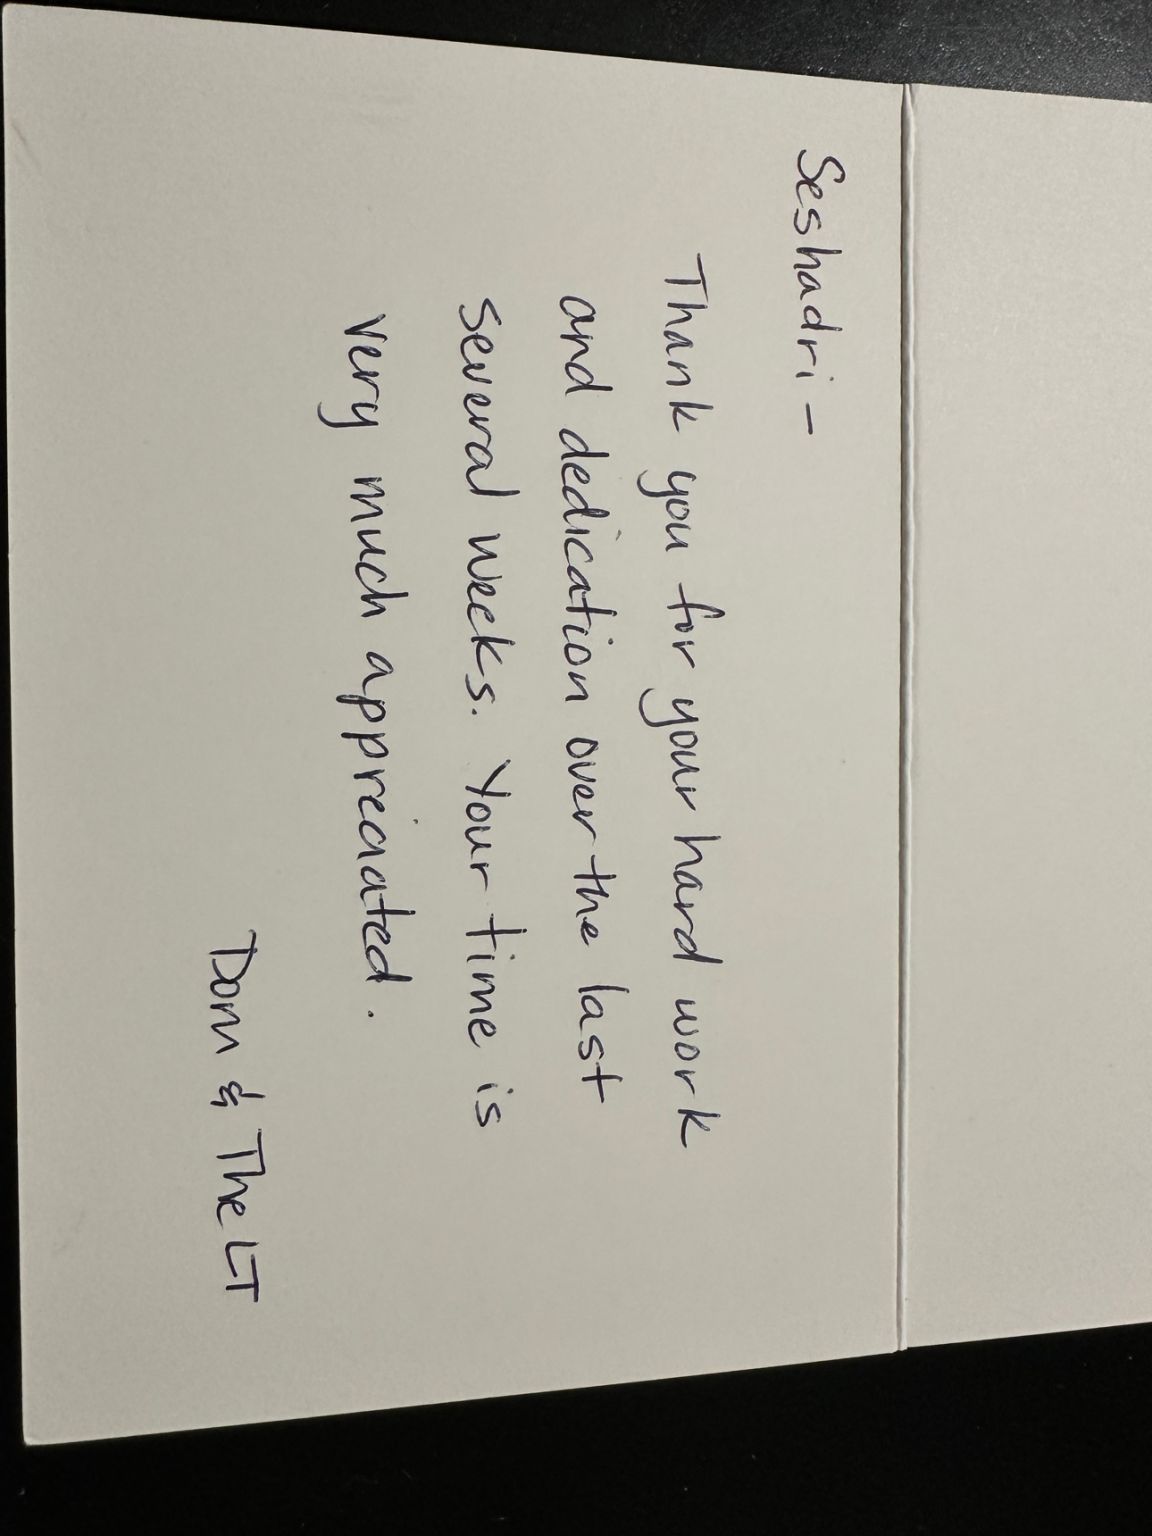 Seshadri -
Thank you for your hard work
and dedication over the last
several weeks. Your time is
very much appreciated.
Dom & The LT